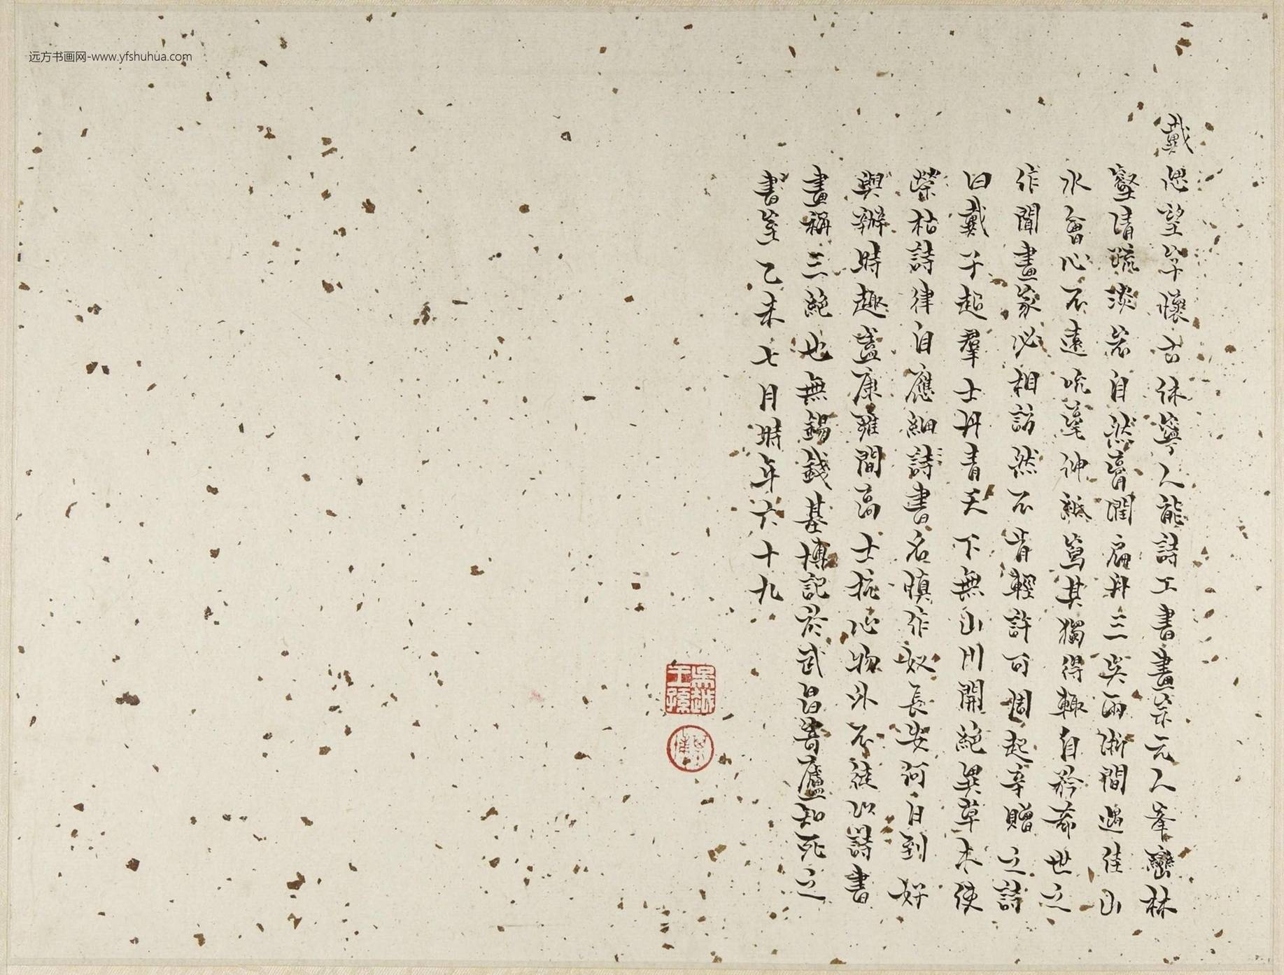 远方书画网-www.yfshuhua.com
戴思望字懷古休寧人能詩工書畫宗元人峯巒林
壑清疏淡宕自然膏潤扁舟三吳兩浙間遇佳山
水會心不遠吮毫伸紙寫其獨得輒自矜奇世之
作聞畫家必相訪然不肯輕許可周起辛贈之詩
曰戴子起羣士丹青天下無山川開絕異草木使
榮枯詩律自應細詩書名慎作奴長安何日到好
與辦時趣蓋康雍間高士抗心物外不徒以詩書
畫稱三絕也無錫錢基博記於武昌寄廬知死之
書室乙未七月時年六十九
吳越王孫
基博